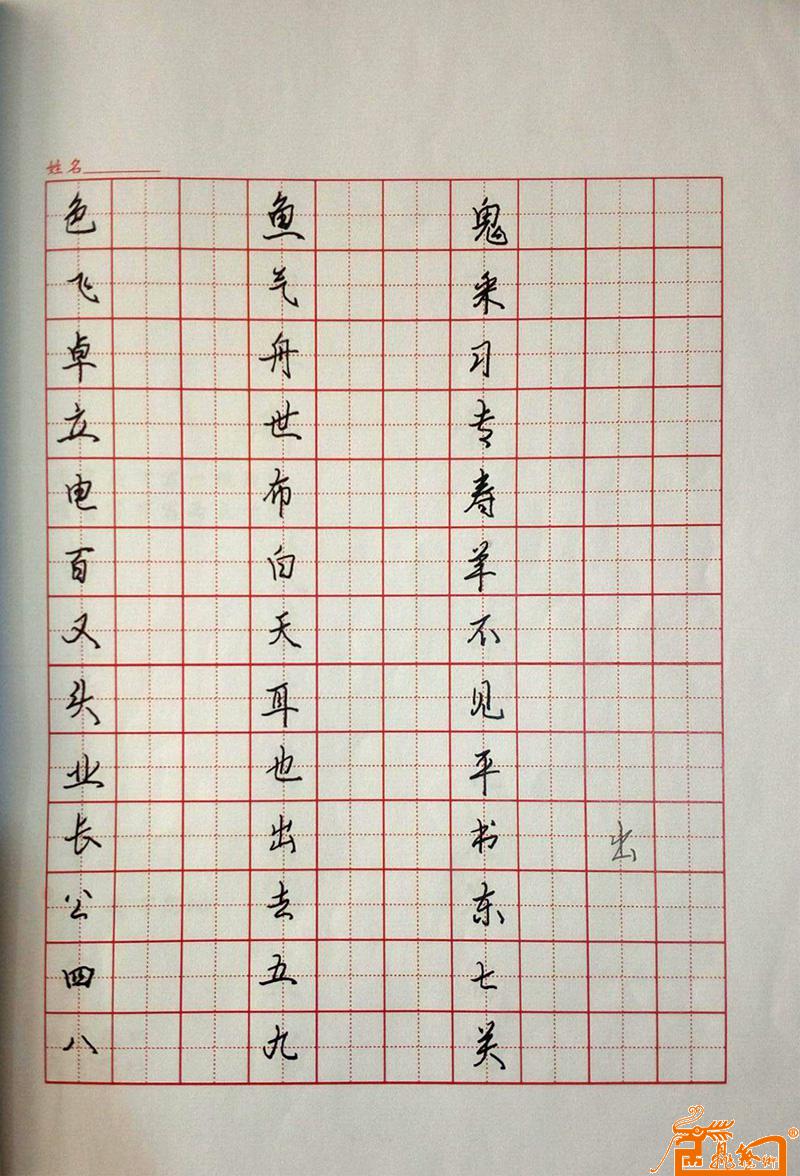 姓名
色 鱼 鬼
飞 气 采
卓 舟 习
立 世 专
电 布 寿
百 白 羊
又 天 不
头 耳 见
业 也 平
长 出 书 出
公 去 东
四 五 七
八 九 关